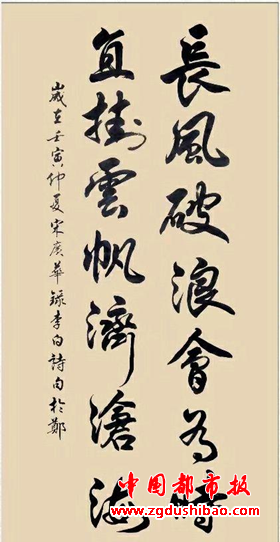 長風破浪會为時
直掛雲帆濟滄海
歲在壬寅仲夏宋广華録李白詩句於鄭
中国都市报
www.zgdushibao.com